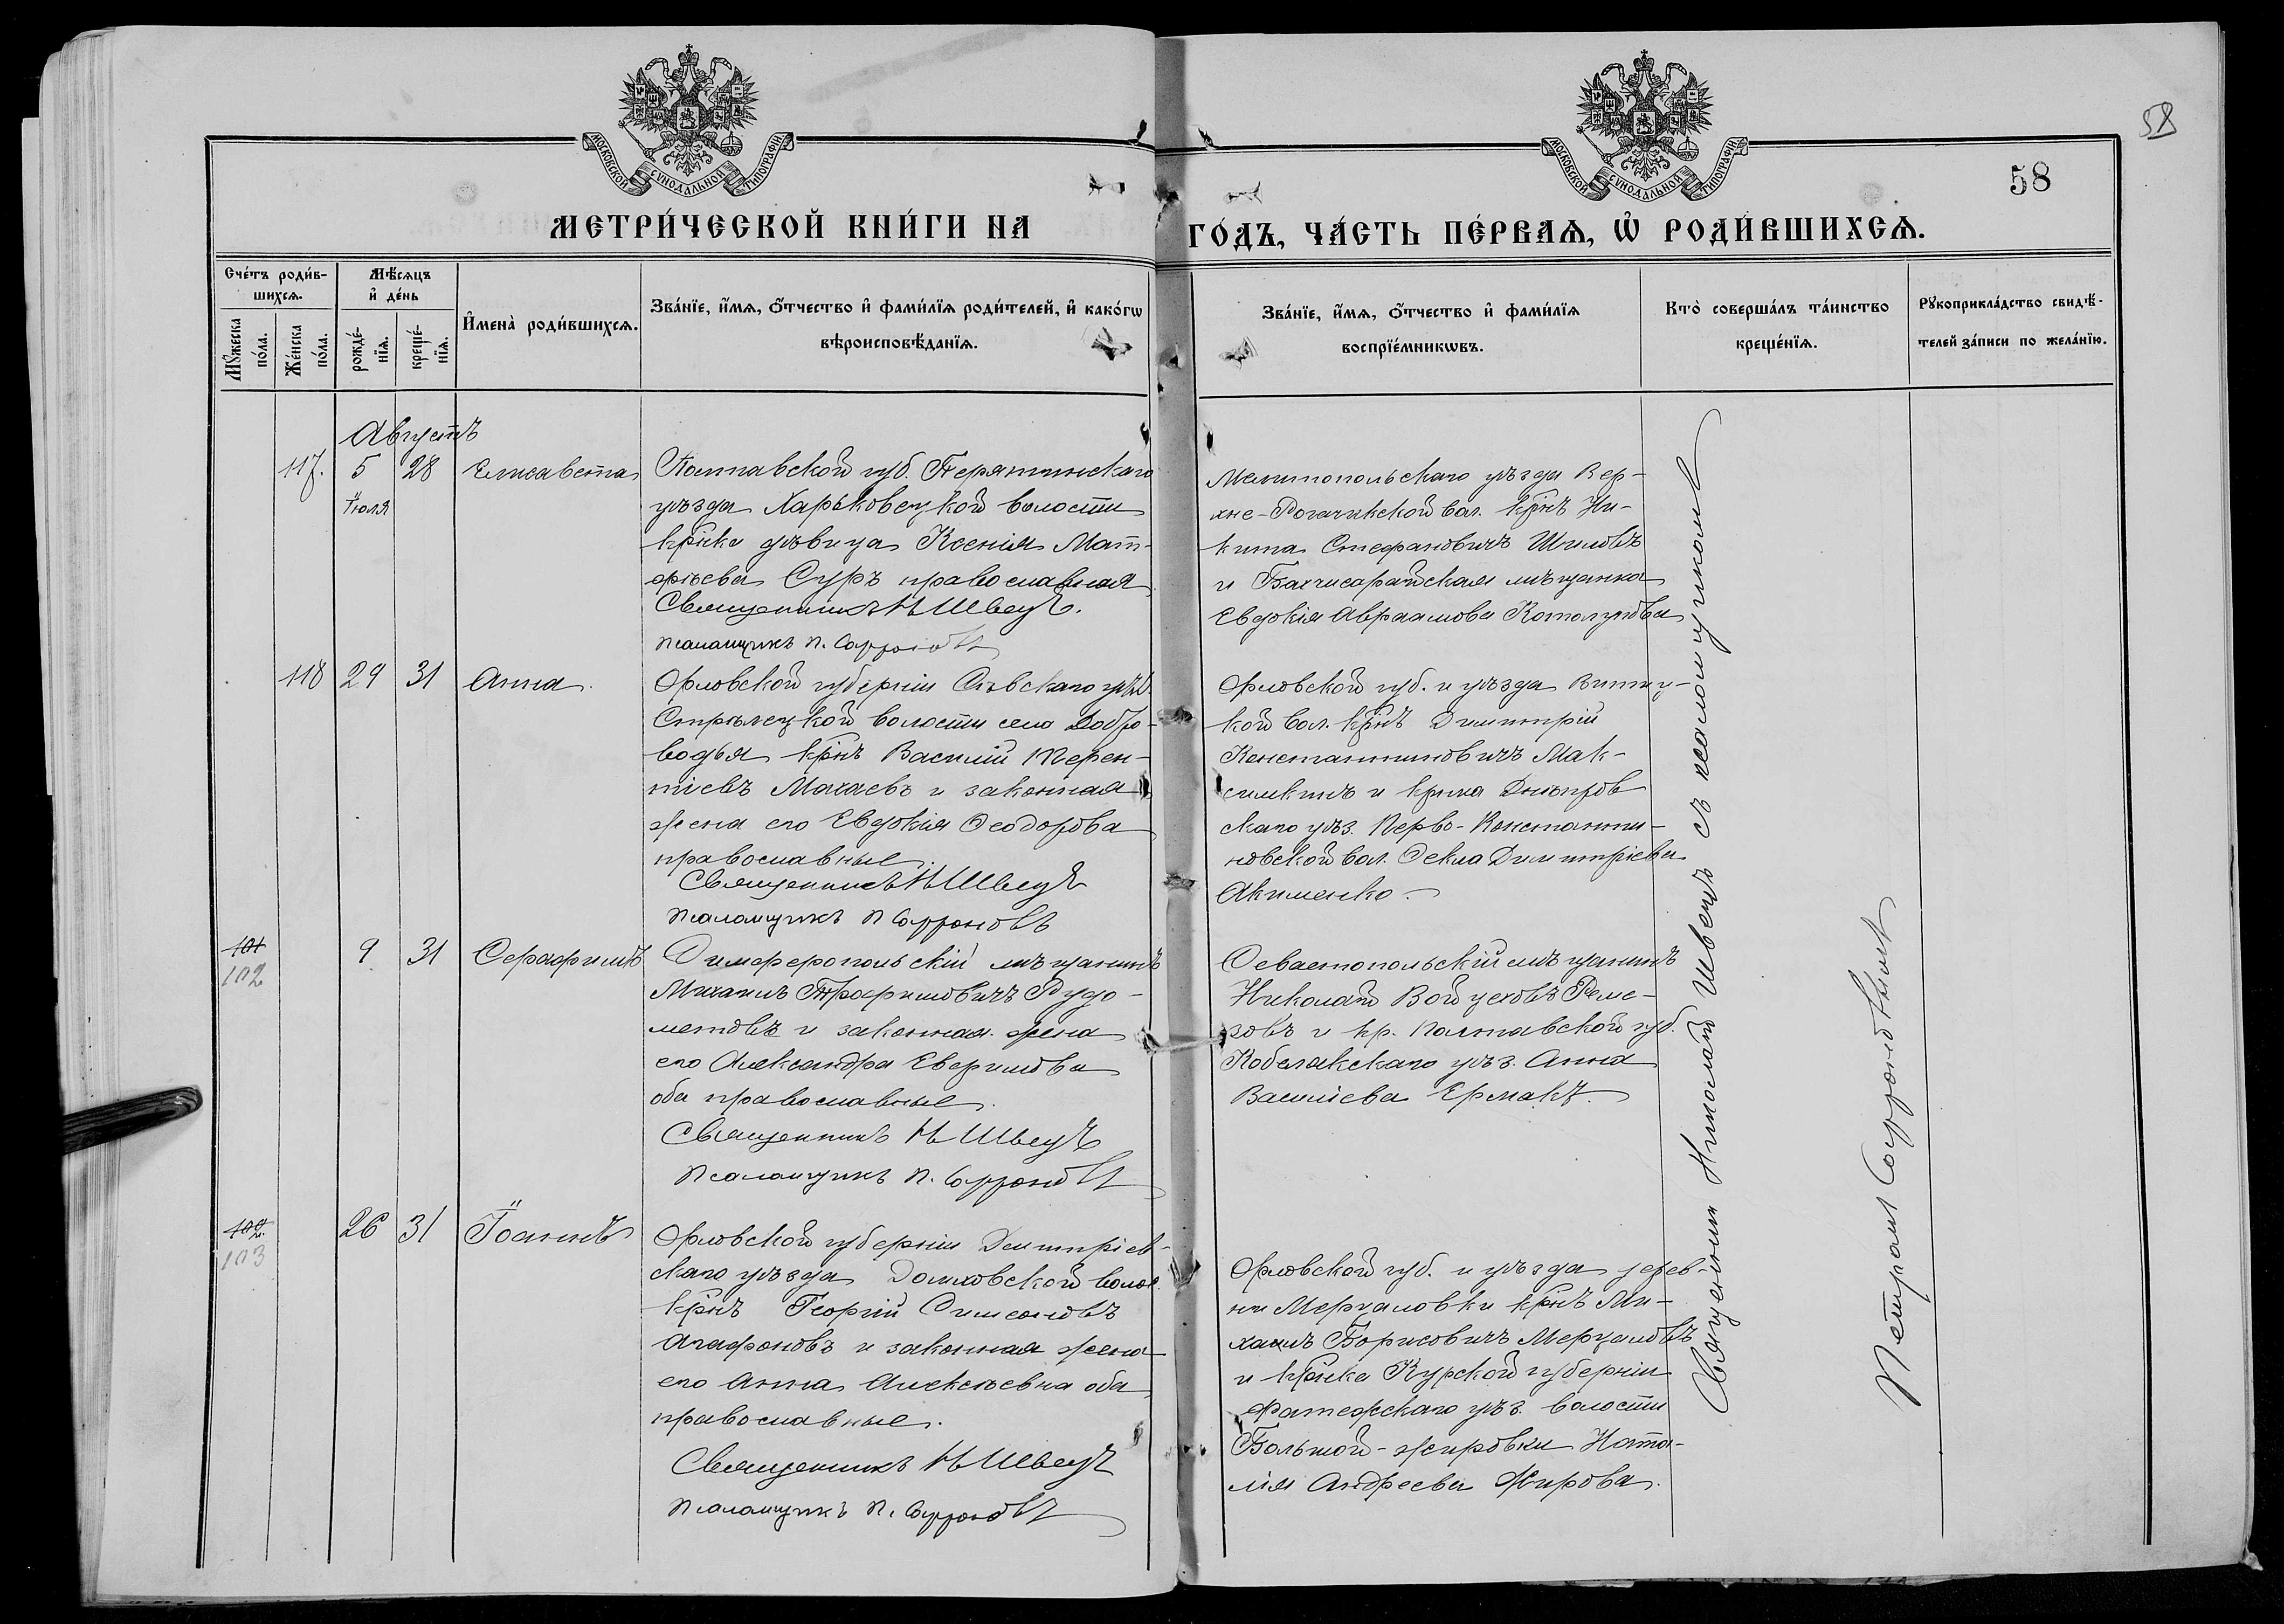 58
МОСКОВСКОЙ СУНОДАЛЬНОЙ ТИПОГРАФІИ
МОСКОВСКОЙ СУНОДАЛЬНОЙ ТИПОГРАФІИ
58
МЕТРИ́ЧЕСКОЙ КНИ́ГИ НА
ГО́ДЪ, ЧА́СТЬ ПЕ́РВАѦ, Ѡ҆ РОДИ́ВШИХСѦ.
Сче́тъ роди́в-
шихсѧ.
Мꙋ́жеска по́ла.
Же́нска по́ла.
Мѣ́сѧцъ
и҆ де́нь
рожде́-
нїѧ.
креще́-
нїѧ.
И҆мена̀ роди́вшихсѧ.
Зва́нїе, и҆́мѧ, ѻ҆́тчество и҆ фами́лїѧ роди́телей, и҆ како́гѡ
вѣроисповѣ́данїѧ.
Зва́нїе, и҆́мѧ, ѻ҆́тчество и҆ фами́лїѧ
воспрїе́мникѡвъ.
Кто̀ соверша́лъ та́инство
креще́нїѧ.
Рꙋкоприкла́дство свидѣ́-
телей за́писи по жела́нїю.
Августъ
117. 5 28 Елисавета
Іюля
Полтавской губ. Пирятинскаго
уѣзда Харьковецкой волости
крнка дѣвица Ксенія Мат-
фіева Суръ православная
Священникъ Н Швецъ.
Псаломщикъ П. Софроновъ
Мелитопольскаго уѣзда Вер-
хне-Рогачикской вол. крнъ Ни-
кита Стефановичъ Шиловъ
и Бахчисарайская мѣщанка
Евдокія Авраамова
118 29 31 Анна.
Орловской губерніи Сѣвскаго уѣзд.
Стрѣлецкой волости села Добро-
водья крнъ Василій Терен-
тіевъ Махаевъ и законная
жена его Евдокія Ѳеодорова
православные.
Священникъ Н Швецъ
Псаломщикъ П Софроновъ
Орловской губ. и уѣзда
кой вол. крнъ Димитрій
Константиновичъ Мак-
симкинъ и крнка Днѣпров
скаго уѣз. Перво-Константи-
новской вол. Ѳекла Димитріева
Акименко.
101
102
9 31 Серафимъ
Симферопольскій мѣщанинъ
Михаилъ Трофимовичъ Рудо-
метовъ и законная жена
его Александра Евфимова
оба православные.
Священникъ Н Швецъ
Псаломщикъ П. Софроновъ
Севастопольскій мѣщанинъ
Николай Войцеховъ Реме-
зовъ и кр. Полтавской губ.
Кобелякскаго уѣз. Анна
Василіева Ермакъ.
102.
103
26 31 Іоаннъ
Орловской губерніи Димитріев-
скаго уѣзда волос.
крнъ Георгій Симеоновъ
Агафоновъ и законная жена
его Анна Алексѣевна оба
православные.
Священникъ Н Швецъ
Псаломщикъ П. Софроновъ
Орловской губ. и уѣзда дерев-
ни Мерцаловки крнъ Ми-
хаилъ Борисовичъ Мерцаловъ
и крнка Курской губерніи
Фатежскаго уѣз. волости
Большой-Жировки Ната-
лія Андреева Жирова.
Священникъ Николай Швецъ съ псаломщикомъ
Петромъ Софроновымъ